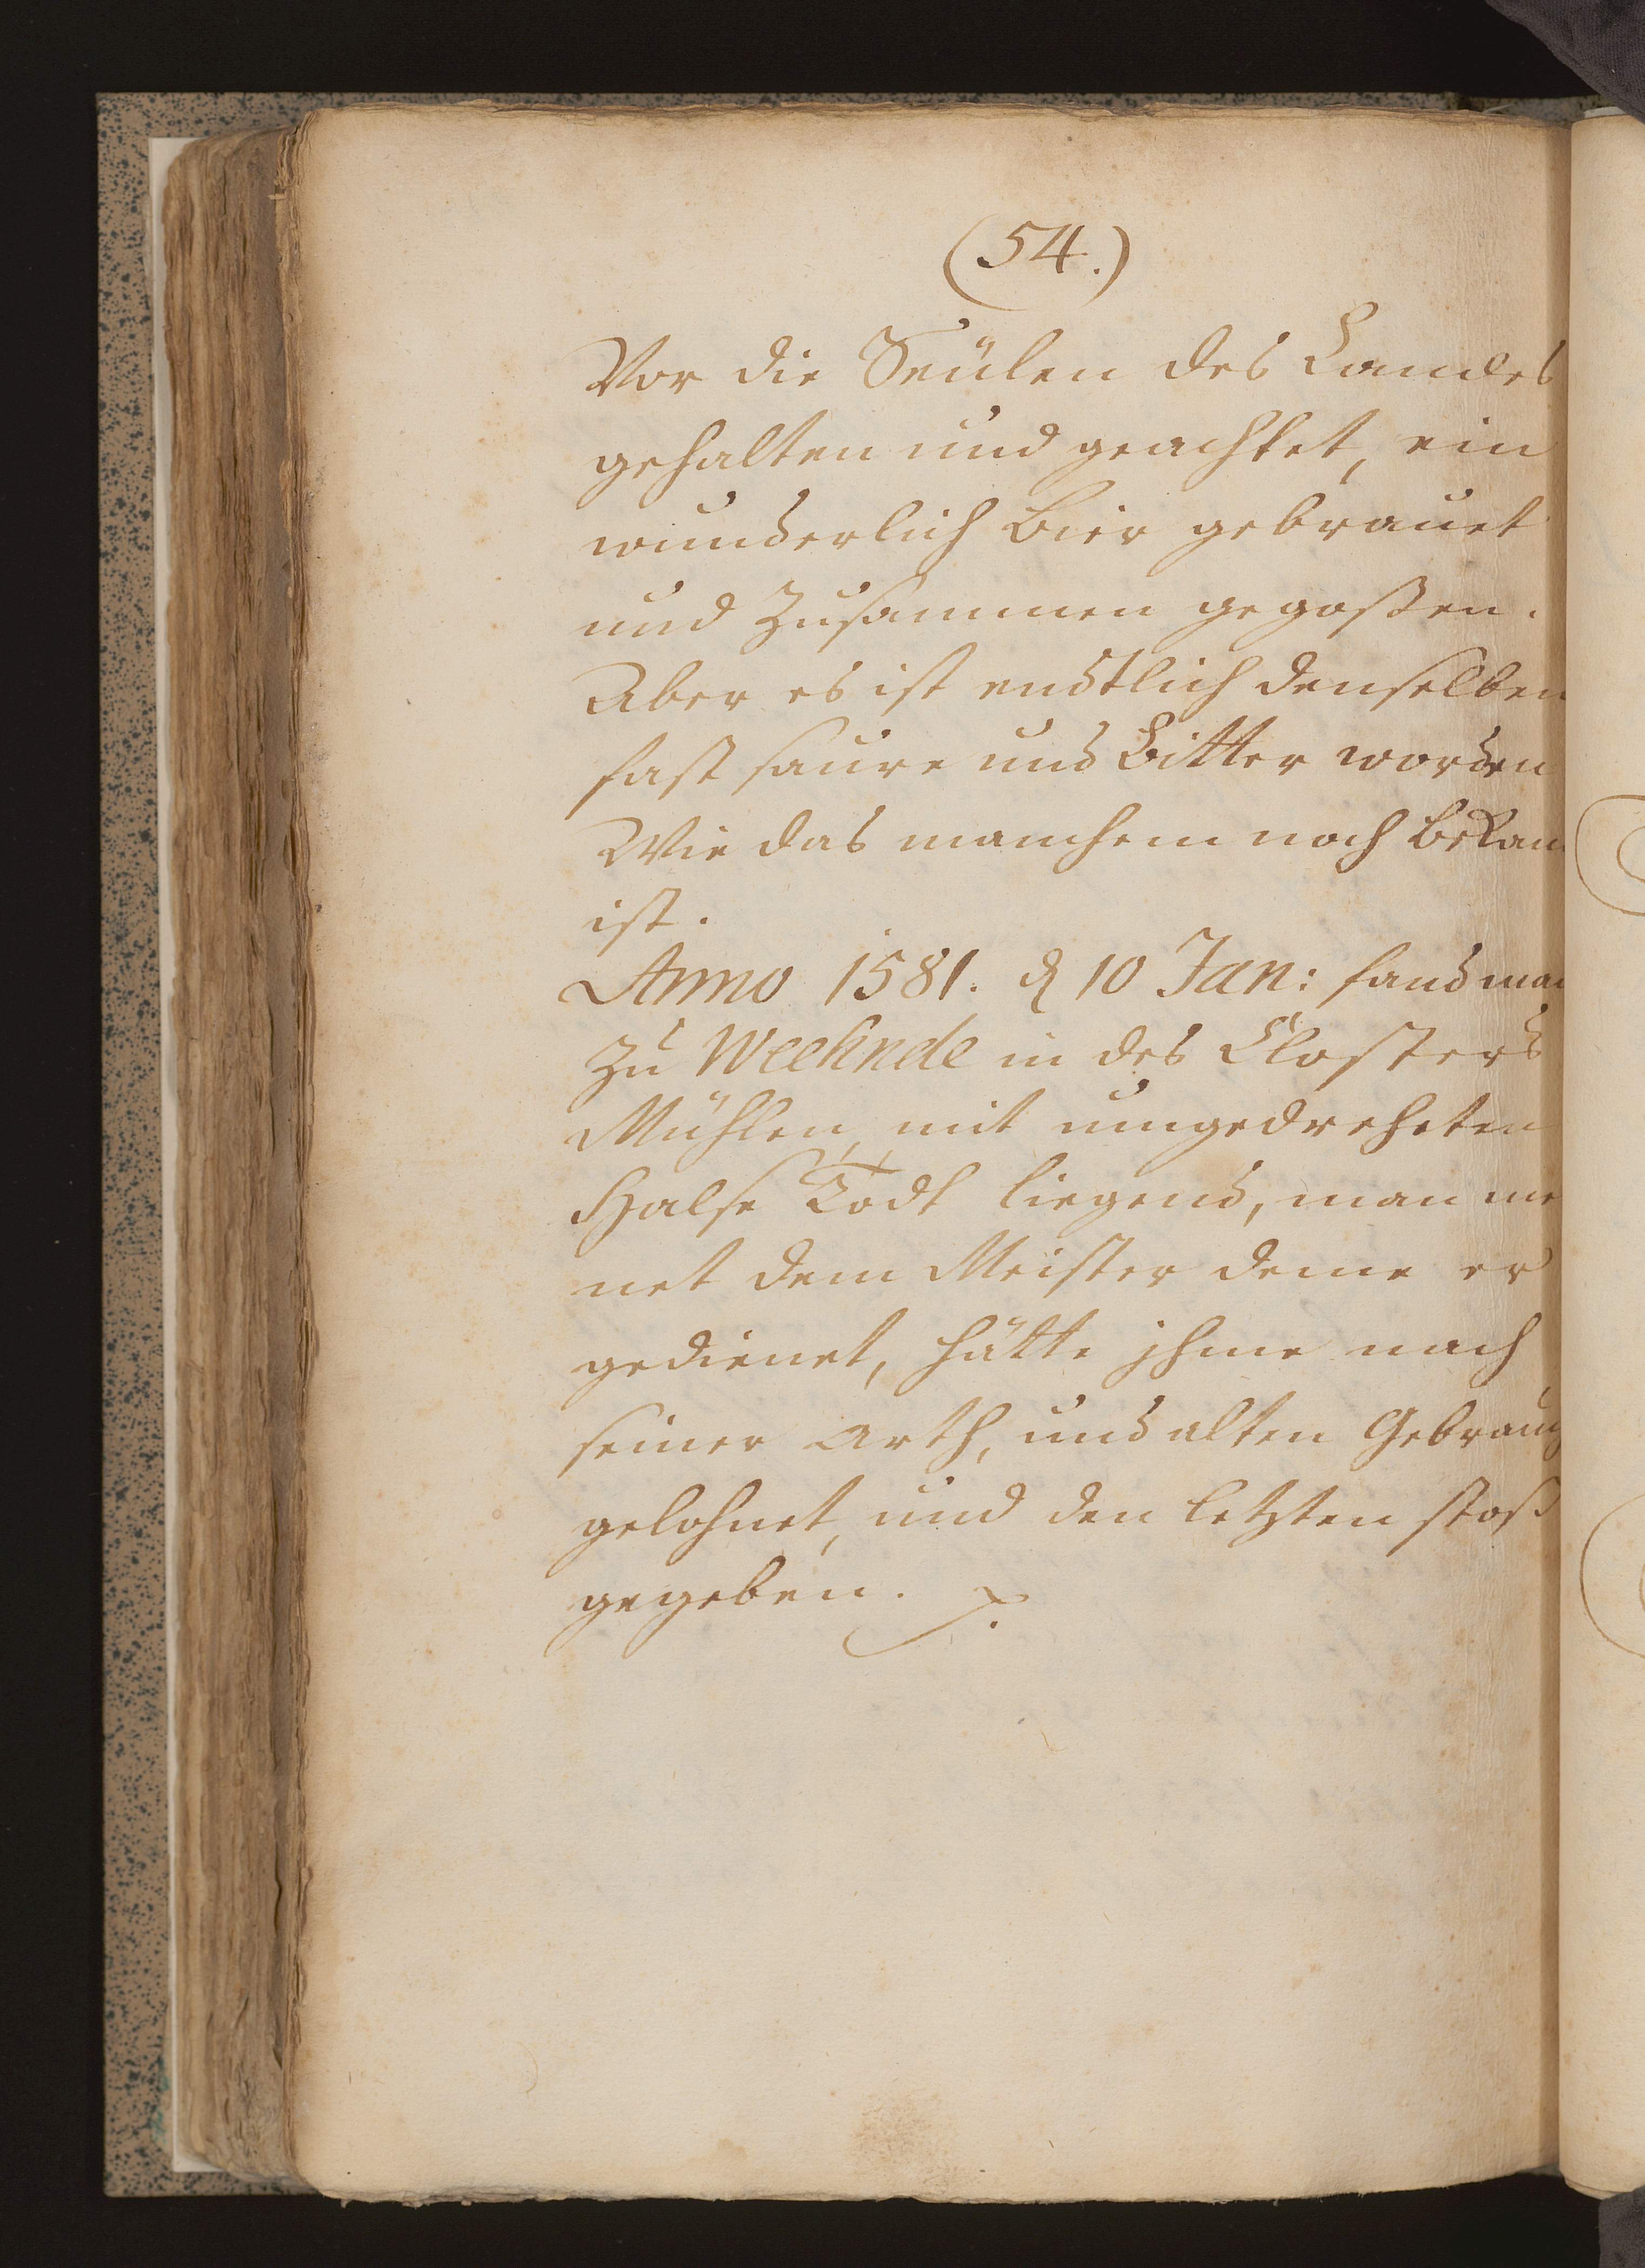 (54.)
Vor die Seülen des Landes
gehalten und geachtet, ein
wunderlich Bier gebrauet
und Zusammen gegoßen.
Aber es ist endtlich denselben
fast saure und Bitter worden
Wie das manchem noch bekan
ist.
Anno 1581. d 10 Jan: fand man
zu Weehnde in des Closters
Mühlen, mit umgedreheten
Halse Todt liegend, man me
net dem Meister deme er
gedienet, hätte ihme nach
seiner Arth, und alten Gebrauch
gelohnet, und den letzten stoß
gegeben.